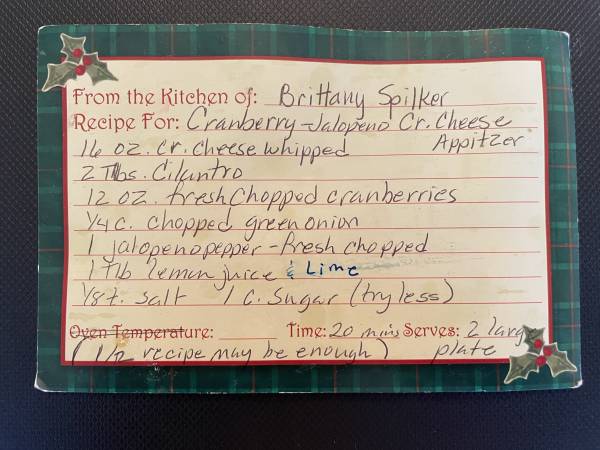 From the Kitchen of: Brittany Spilker
Recipe For: Cranberry-Jalopeno Cr. Cheese
Appitzer
16 oz. Cr. Cheese whipped
2 Tlbs. Cilantro
12 oz. fresh Chopped cranberries
1/4 c. chopped green onion
1 jalopeno pepper - fresh chopped
1 Tlb lemon juice & Lime
1/8 t. salt 1 C. Sugar (try less)
Oven Temperature: Time: 20 mins Serves: 2 larg
(1/2 recipe may be enough) plate